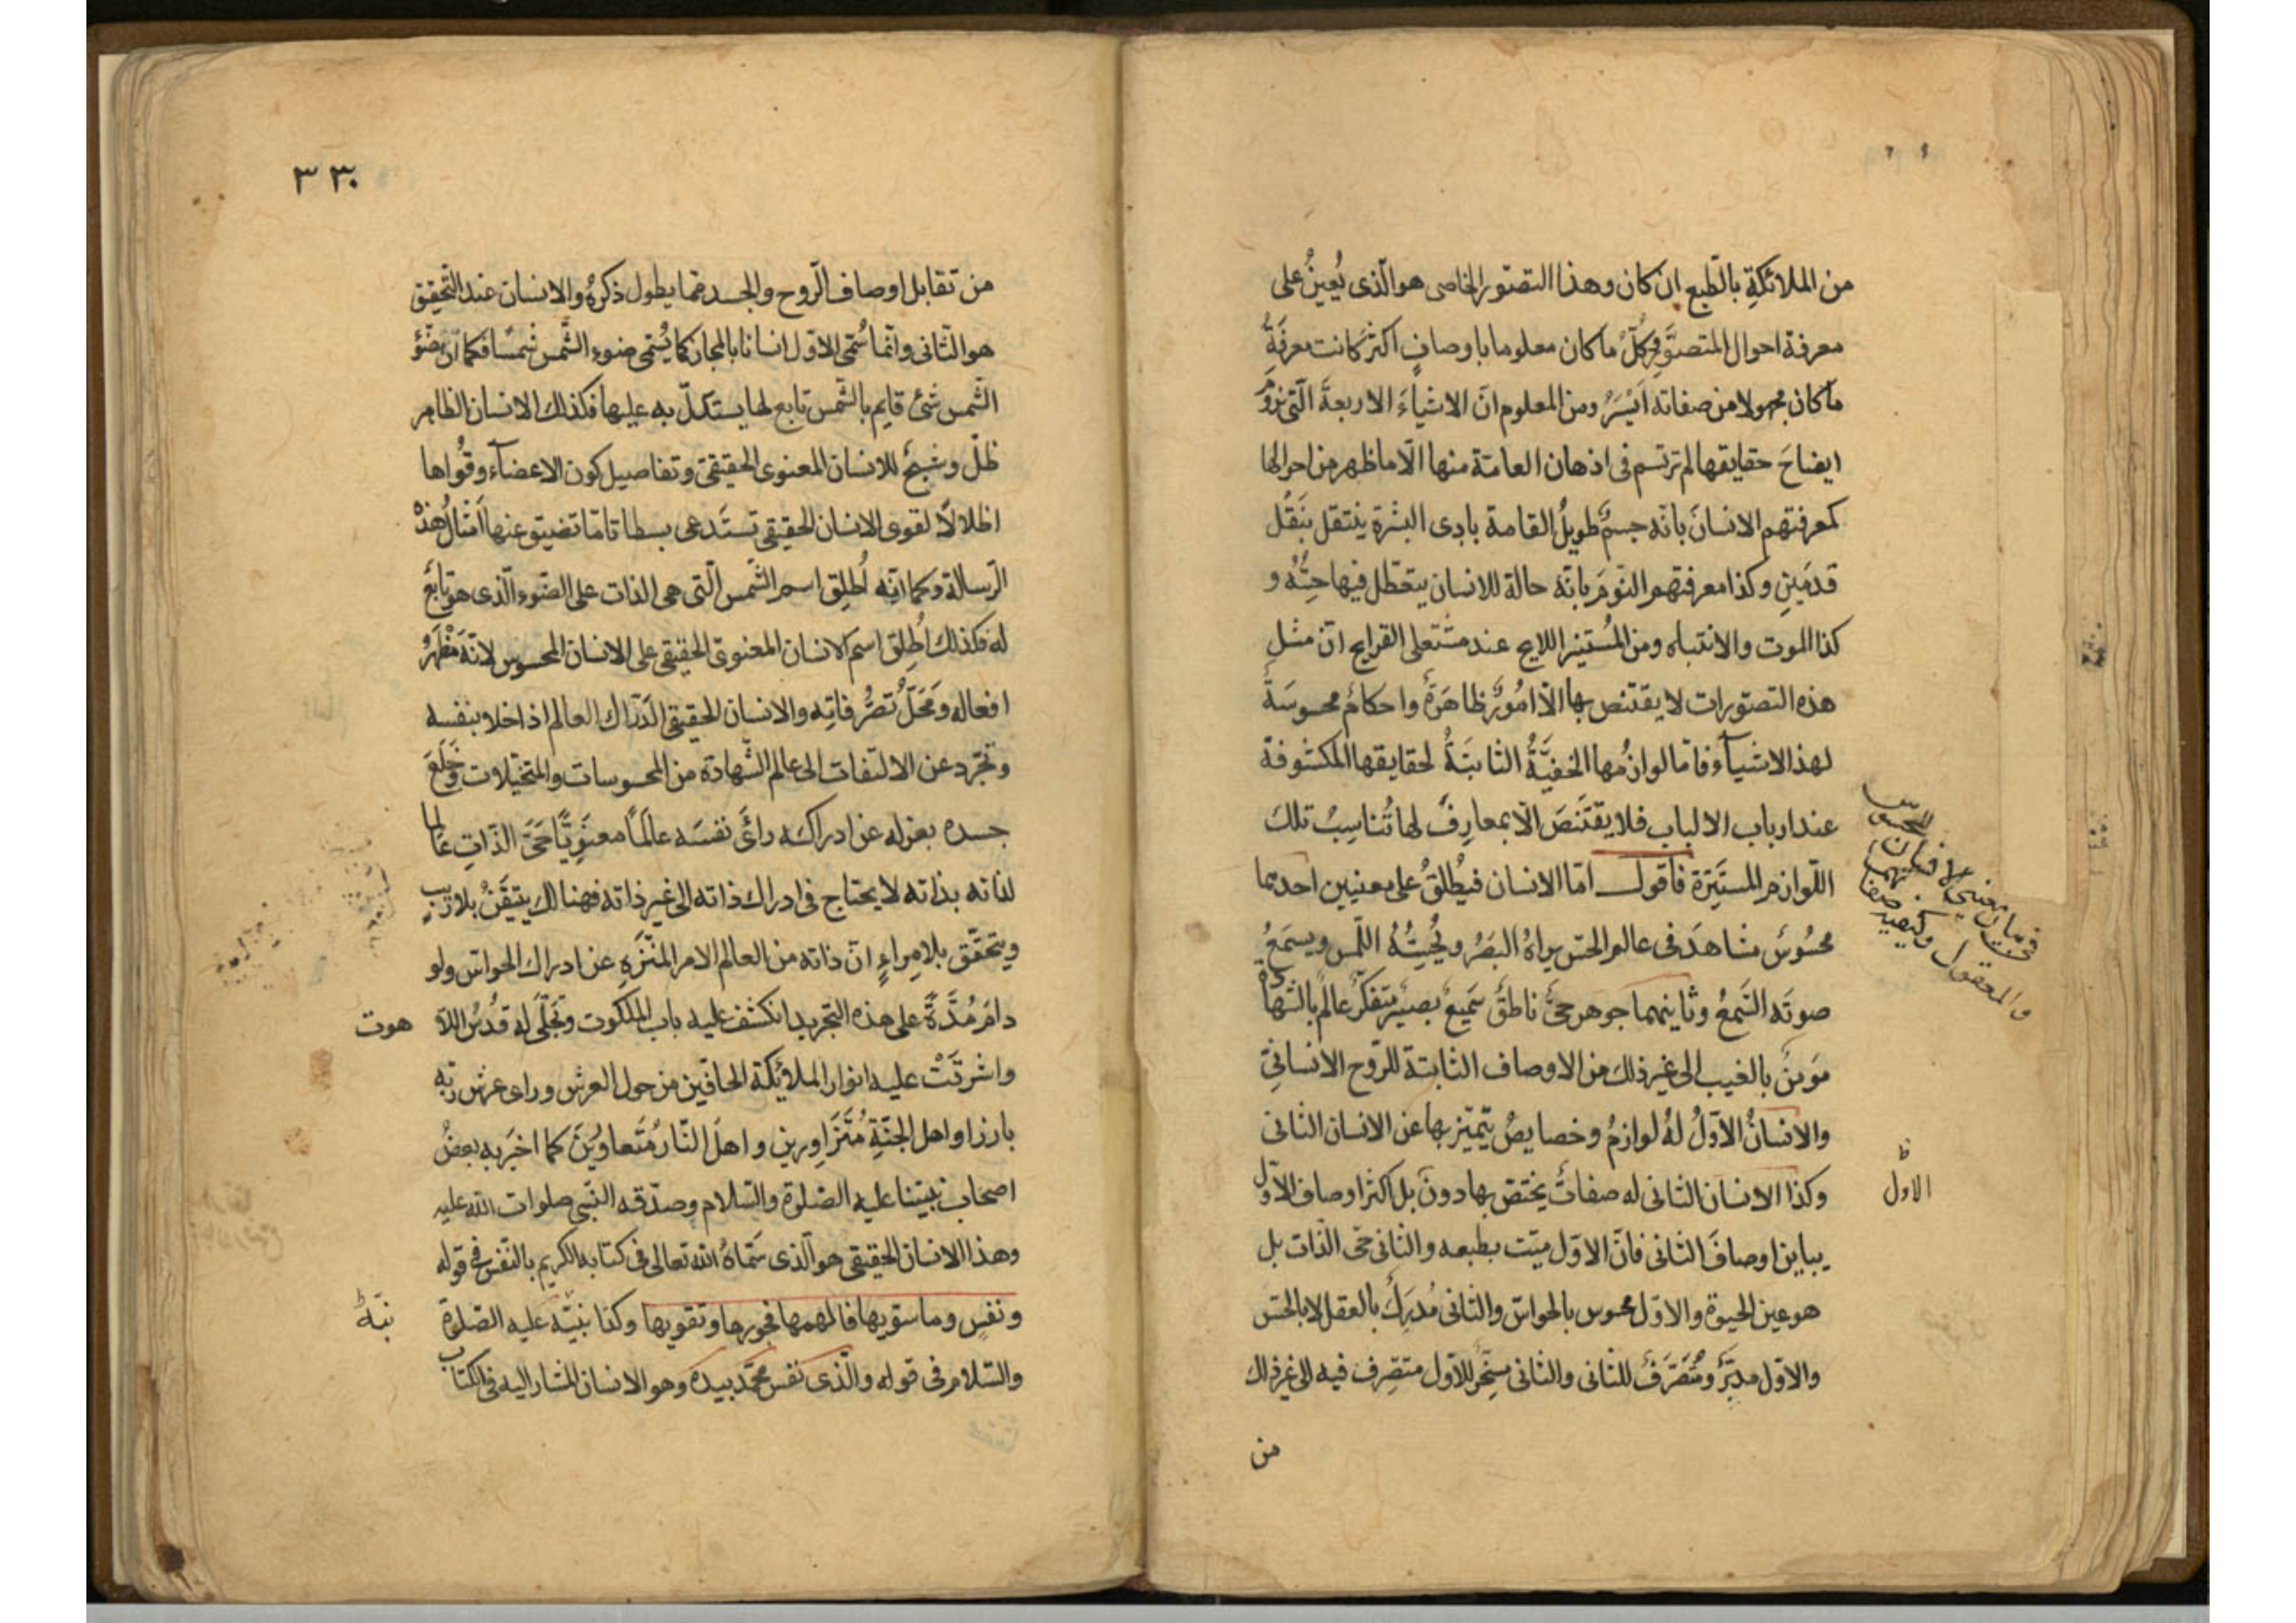 من الملائكة بالطبع ان كان وهذا التصور الخاص هو الذى يُعينُ على
معرفة احوال المتصوَّر فكلّ ما كان معلوما باوصافٍ اكثرَ كانت معرفةُ
ما كان مجهولا من صفاته اَيْسَرُ ومن المعلوم انّ الاشياءَ الاربعةَ الّتى نرومُ
ايضاحَ حقايقها لم ترتسم فى اذهان العامّة منها الّا ما ظهر من احوالها
كمعرفتهم الانسانَ بانّه جسمٌ طويلُ القامة بادى البشرة ينتقل بنَقْل
قدمَينِ وكذا معرفتهم النّومَ بانّه حالة للانسان يتعطّل فيها حِسُّهُ و
كذا الموت والانتباه ومن المُستنير اللايح عند مشتعلى القرايح انّ مثل
هذه التصوّرات لا يقتنص بها الّا امُورٌ ظاهَرةٌ واحكامٌ محسوسَةٌ
لهذا الاشيآء فامّا لوازمُها الخفيَّةُ الثابتَةُ لحقايقها المكشوفة
عند ارباب الالباب فلا يقتَنَصَ الّا بمعارِفَ لها تُناسِبُ تلك
اللّوازم المستَتِرة فاقول امّا الانسان فيُطلَقُ على معنيين احدهما
محسُوسٌ مشاهَد فى عالم الحسّ يراهُ البصَرُ ويُحِسُّهُ اللّمس ويسمَعُ
صوتَه السّمعُ وثانيهما جوهر حىٌّ ناطقٌ سَميعٌ بصيرٌ متفكّرٌ عالمٌ بالشهادة
مؤمنٌ بالغيب الى غير ذلك من الاوصاف الثابتة للرّوح الانسانىّ
والانسانُ الاَوّلُ لهُ لوازمُ وخصايصُ يتميّز بها عن الانسان الثانى
وكذا الانسان الثانى له صفاتٌ يختصّ بها دونَ بل اكثر اوصاف الاوّل
الاول
يباين اوصافَ الثانى فانّ الاوّل ميّت بطبعه والثانى حىّ الذّات بل
هو عين الحيوة والاوّل محسوس بالحواسّ والثانى مُدرَكٌ بالعقل لا بالحسّ
والاوّل مدبَّرٌ ومُتَصَرَّفٌ للثانى والثانى مسخِّرٌ للاوّل متصرّف فيه الى غير ذلك
من
فى بيان معنيى الانسان
المحسوس
والمعقول
٣٣٠
من تقابل اوصاف الرّوح والجسد ممّا يطول ذكرُهُ والانسان عند التّحقيق
هو الثّانى وانّما سُمّى الاوّل انسانا بالمجاز كما يُسمّى ضوء الشّمس شمسًا فكما انّ ضَوْءَ
الشّمس شئ قايم بالشّمس تابع لها يستدلّ به عليها فكذلك الانسان الظاهر
ظلّ وشبحٌ للانسان المعنوى الحقيقىّ وتفاصيل كون الاعضآء وقُواها
اظلالًا لقوى الانسان الحقيقى تستَدعى بسطا تامّا تضيق عنها اَمثالُ هذه
الرّسالة وكما انّه اُطلِق اسم الشّمس الّتى هى الذات على الضّوء الّذى هو تابعٌ
له فكذلك اُطلِق اسم الانسان المعنوىّ الحقيقى على الانسان المحسوس لانّه مَظْهَرُ
افعاله ومَحَلُّ تصَرُّفاتِه والانسان الحقيقى الدّرّاك العالم اذا خلا بنفسه
وتجّرد عن الالتفات الى عالم الشّهادة من المحسوسات والمتخيّلات وخَلَعَ
جسده بعزله عن ادراكه رائَ نفسَه عالَمًا معنَوِيًّا حَىَّ الذّاتِ عالما
لذاته بذاته لا يحتاج فى ادراك ذاته الى غير ذاته فهنالك يتيقَّنُ بلا ريبٍ
ويتحقّق بلا مِراءٍ انّ ذاته من العالم الامر المنَزَّهِ عن ادراك الحواسّ ولو
دامَ مُدَّةً على هذه التجريد انكشف عليه باب الملكوت وتَجلّى له قُدسُ اللّا
هوت
واشرقَتْ عليه انوار الملائكة الحافّين من حول العرش وراى عرش ربّه
بارزا واهل الجنّةِ مُتَزاوِرين واهلَ النّار مُتَعاوِينَ كما اخبَر به بعضُ
اصحاب نبيّنا عليه الصّلوة والسّلام وصدّقه النّبى صلوات اللّه عليه
وهذا الانسان الحقيقى هو الّذى سَمّاهُ اللّه تعالى فى كتابه الكريم بالنّفس فى قوله
ونفسٍ وما سوّيها فالهمها فجورها وتقويها وكذا نبيّه عليه الصّلوة
نبّه
والسّلام فى قوله والّذى نفس محمّد بيده وهو الانسان المشار اليه فى الكتاب